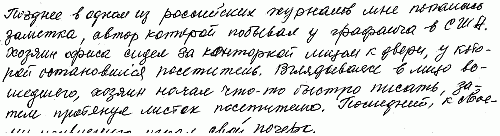 Позднее в одном из российских журналов мне попалась
заметка, автор которой побывал у графолога в США.
Хозяин офиса сидел за конторкой лицом к двери, у кото-
рой остановился посетитель. Вглядываясь в лицо во-
шедшего, хозяин начал что-то быстро писать, за-
тем протянул листок посетителю. Последний, к свое-
му изумлению, узнал свой почерк.